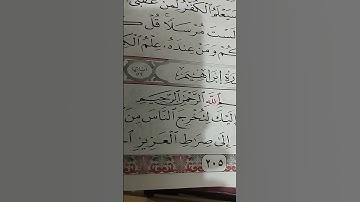 سَيَعْلَمُ ٱلْكُفَّٰرُ لِمَنْ عُقْبَى
لَسْتَ مُرْسَلًا ۚ قُلْ كَ
كُمْ وَمَنْ عِندَهُۥ عِلْمُ ٱلْكِ
إبراهيم
ٱللَّهِ ٱلرَّحْمَٰنِ ٱلرَّحِيمِ
إِلَيْكَ لِتُخْرِجَ ٱلنَّاسَ مِنَ
إِلَىٰ صِرَٰطِ ٱلْعَزِيزِ ٱ
٢٠٥